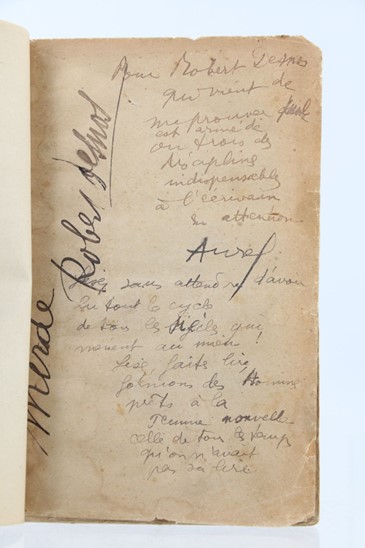 Pour Robert Desnos
qui vient de
me prouver
est armé de
ou trois des
discipline
indispensables
à l'écrivain
en attention
Aurel
sans attendre d'avoir
lu tout le cycle
de tous les siècles qui
mènent au mien!
lisez, faites lire
formons des Hommes
prêts à la
Femme nouvelle
celle de tous les temps
qu'on n'avait
pas su lire
Merde
Robert Desnos